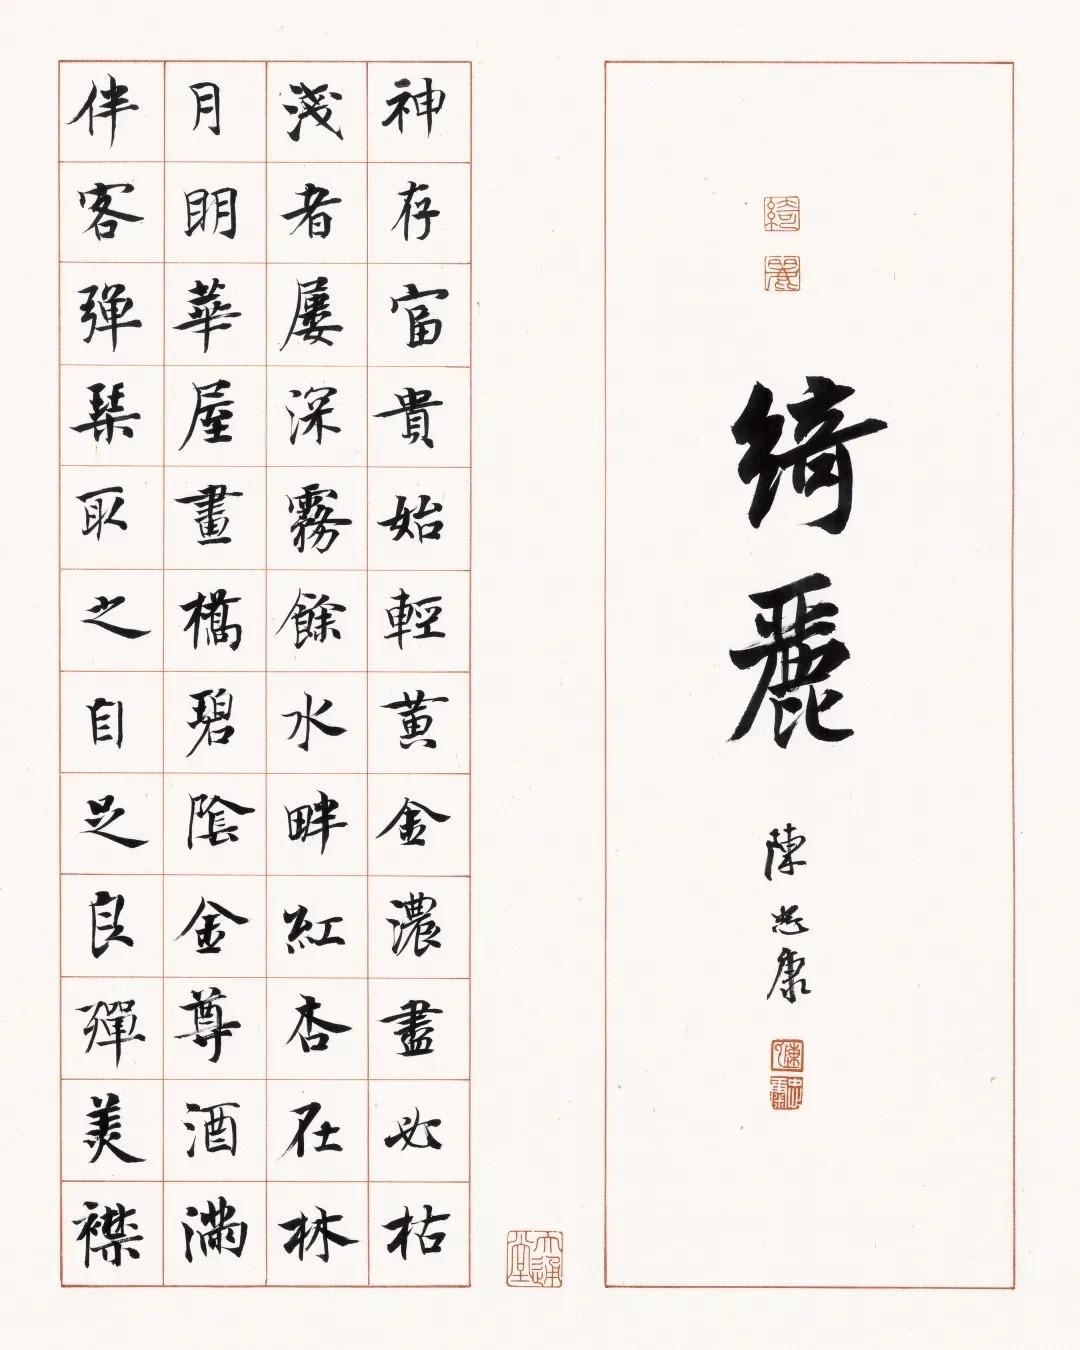 綺麗
綺麗
陳忠康
神存富貴始輕黃金濃盡必枯
淺者屡深霧餘水畔紅杏在林
月明華屋畫橋碧陰金尊酒滿
伴客弹琴取之自足良殫美襟